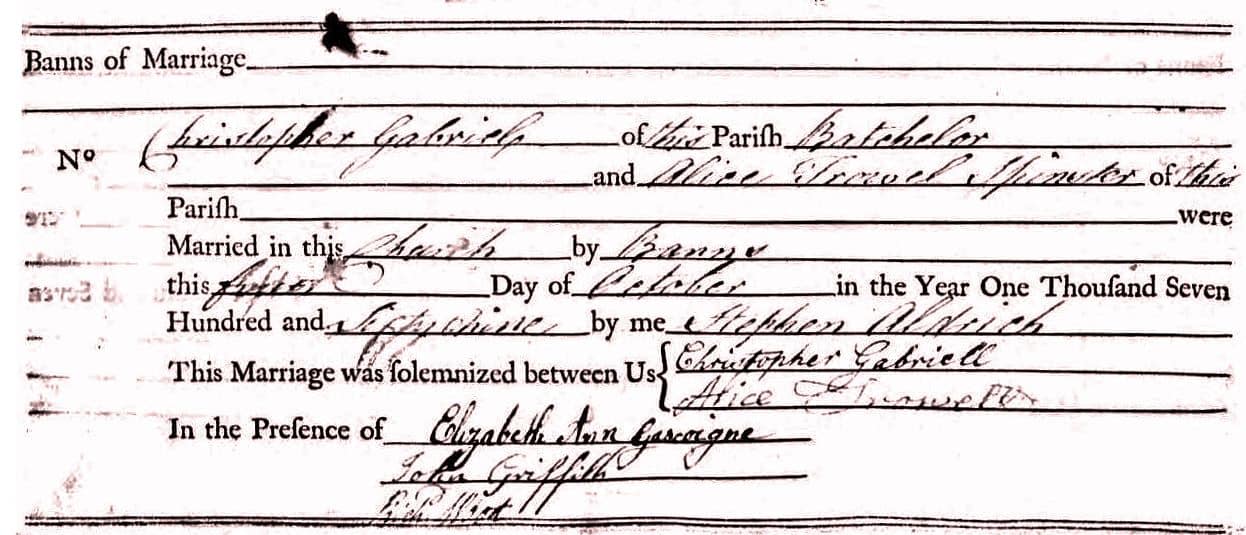 Banns of Marriage
Nº Christopher Gabriel of this Pariſh Batchelor
and Alice Trowel Spinster of this
Pariſh were
Married in this Church by Banns
this Day of October in the Year One Thouſand Seven
Hundred and Sixty nine by me Stephen Aldrich
This Marriage was ſolemnized between Us Christopher Gabriell
Alice Trowell
In the Preſence of Elizabeth Ann Gascoigne
John Griffith